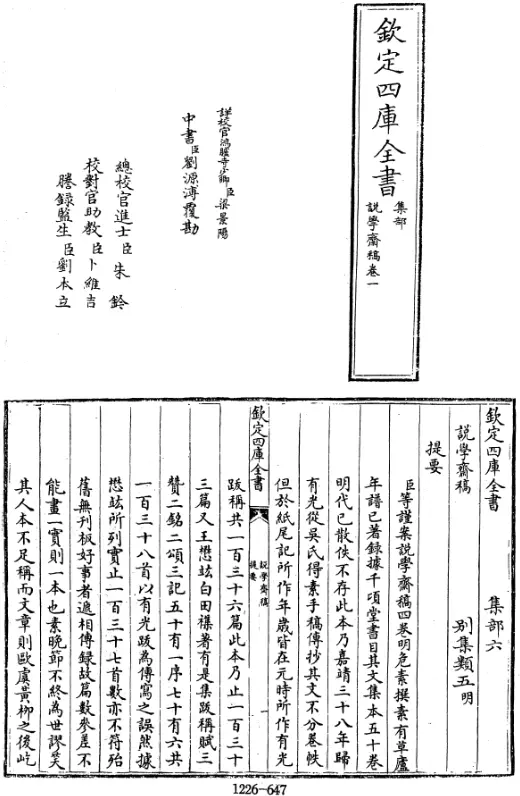 欽定四庫全書
集部
說學齋稿卷一
詳校官鴻臚寺少卿臣梁景陽
中書臣劉源溥覆勘
總校官進士臣朱鈐
校對官助教臣卜維吉
謄錄監生臣劉本立
欽定四庫全書 集部六
說學齋稿 別集類五明
提要
臣等謹案說學齋稿四卷明危素撰素有草廬
年譜已著錄據千頃堂書目其文集本五十卷
明代已散佚不存此本乃嘉靖三十八年歸
有光從吳氏得素手稿傳抄其文不分卷帙
但於紙尾記所作年歲皆在元時所作有光
欽定四庫全書
說學齋稿
提要
跋稱共一百三十六篇此本乃止一百三十
三篇又王懋竑白田襍著有是集跋稱賦三
贊二銘二頌三記五十有一序七十有六共
一百三十八首以有光跋為傳寫之誤然據
懋竑所列實止一百三十七首數亦不符殆
舊無刊板好事者遞相傳錄故篇數參差不
能畫一實則一本也素晚節不終為世謬笑
其人本不足稱而文章則歐虞黃柳之後屹
1226-647